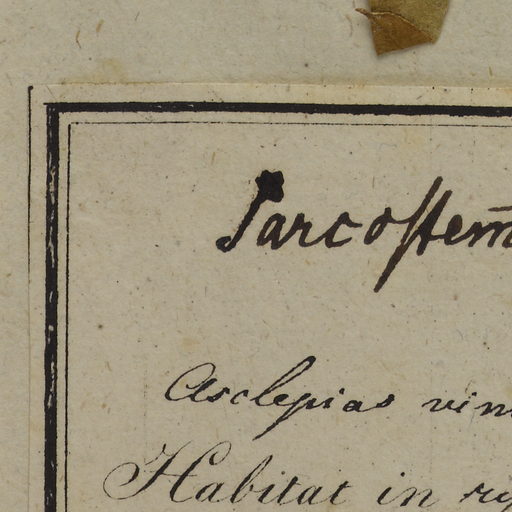 Sarcostem̅
Asclepias vim
Habitat in